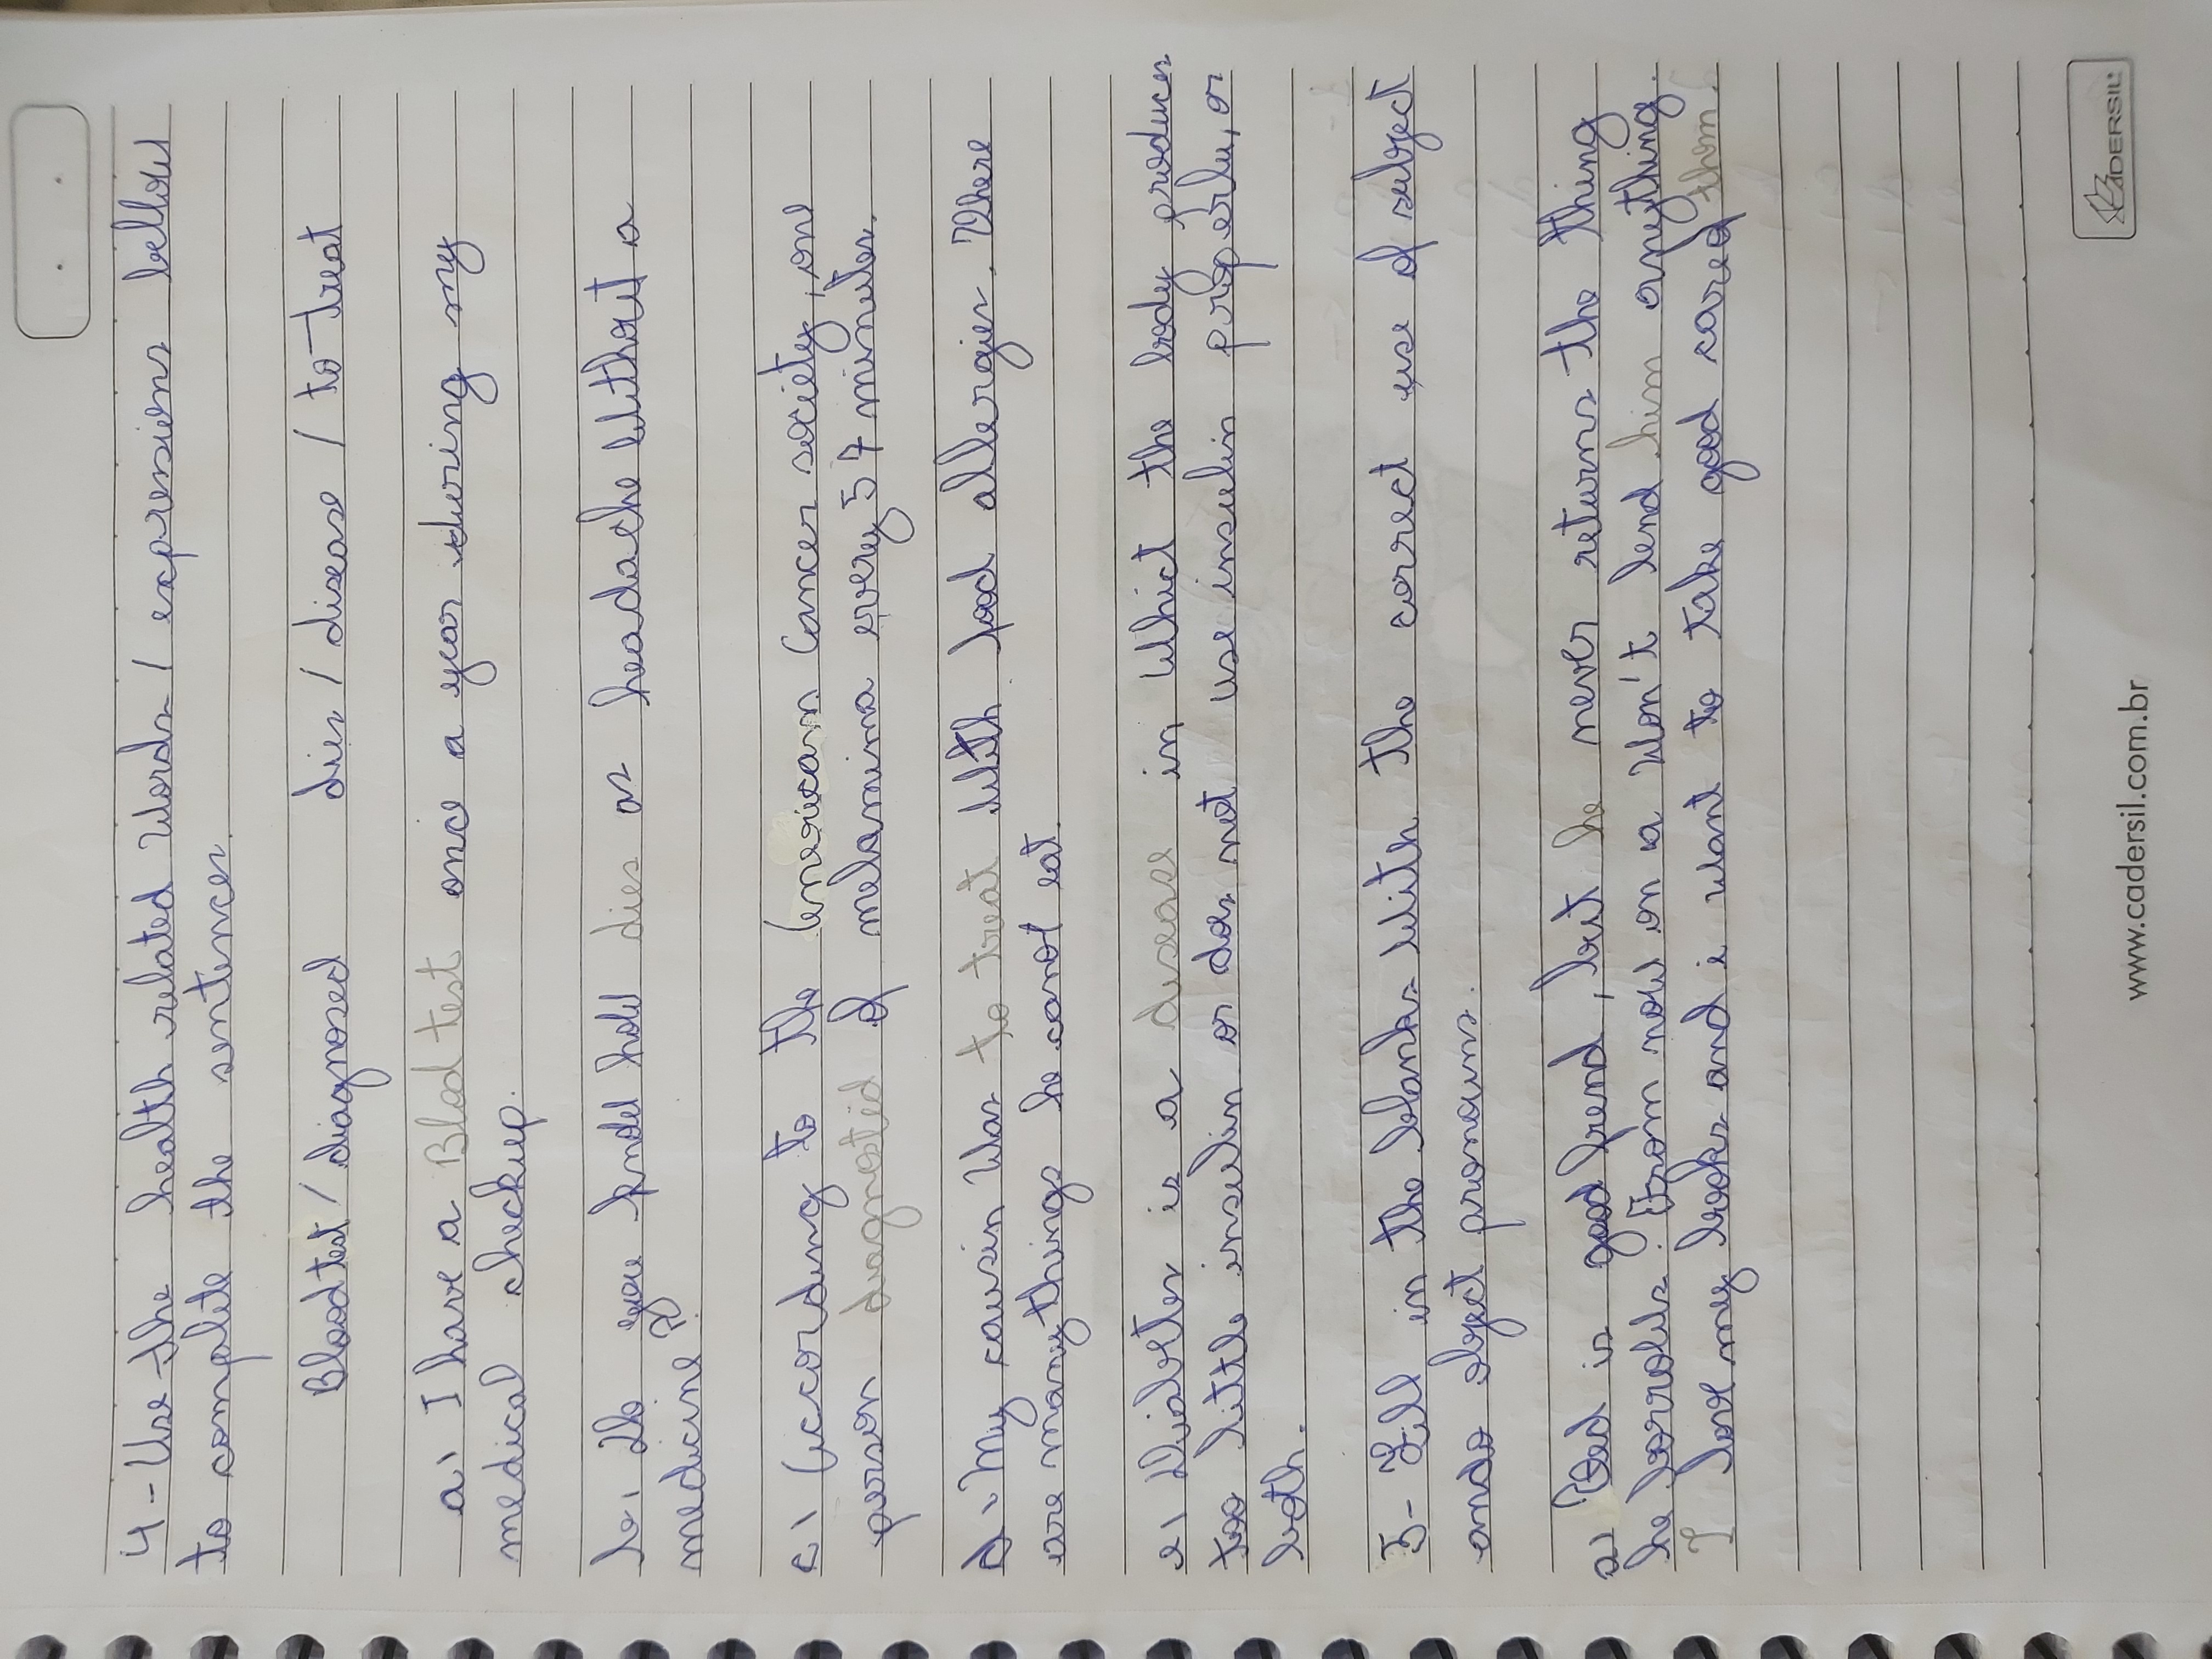 4-Use the health related words / expressions bellow
to complete the sentences.
Blood test / diagnosed dies / disease / to treat
a) I have a Blod test once a year during my
medical checkup.
b) Do you know how dies as headache without a
medicine?
c) According to the American Cancer society, one
person diagnosted of melanima every 57 minutes.
d) My cousin was to treat with food allergies. There
are many things he canot eat.
e) Diabetes is a disease in whict the body produces
too little insulin or does not use insulin properlu, or
both.
5- Fill in the blanks with the correct use of subject
ando object pronouns.
a) Ted is good frend, but he never returns the thing
he borrows. From now on a won't lend him anything.
I love my books and i want to take good care of them.
www.cadersil.com.br
CADERSIL